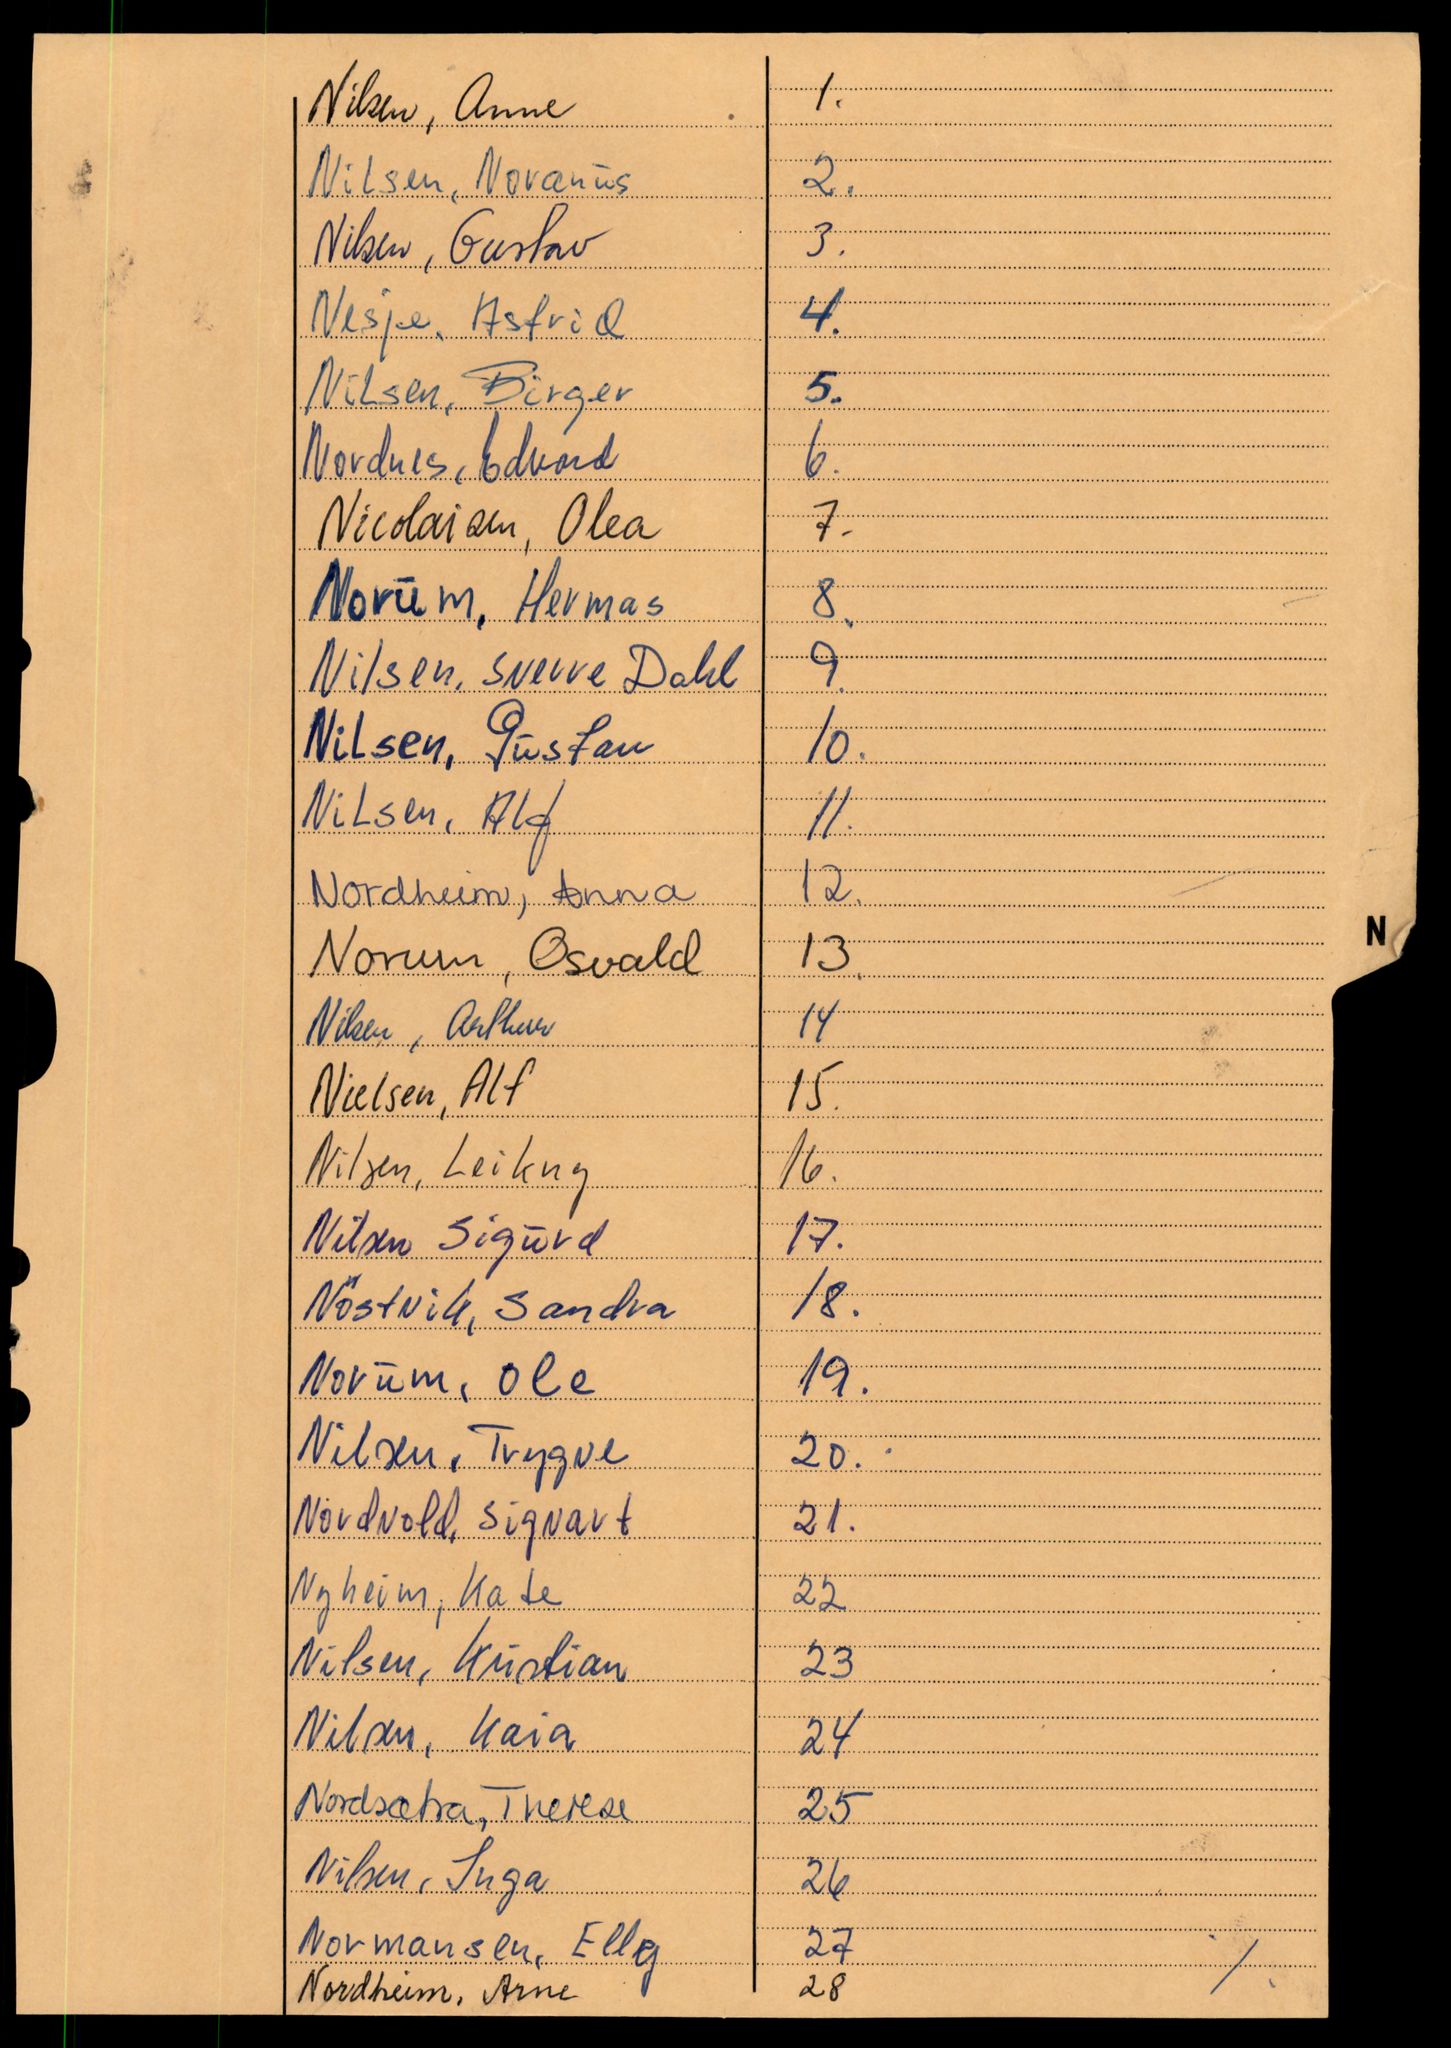 Nilsen, Anne 1.
Nilsen, Novanŭs 2.
Nilsen, Gustav 3.
Nesje, Astrid 4.
Nilsen, Birger 5.
Nordnes, Edvard 6.
Nicolaisen, Olea 7.
Norŭm, Hermas 8.
Nilsen, Sverre Dahl 9.
Nilsen, Gŭstav 10.
Nilsen, Alf 11.
Nordheim, Anna 12.
Norum, Osvald 13.
N
Nilsen, Arthur 14
Nielsen, Alf 15.
Nilsen, Leikny 16.
Nilsen Sigŭrd 17.
Nöstvik, Sandra 18.
Norŭm, Ole 19.
Nilsen, Trygve 20.
Nordvold, Sigvart 21.
Nyheim, Kate 22
Nilsen, Kristian 23
Nilsen, Kaia 24
Nordsætra, Therese 25
Nilsen, Inga 26
Normansen, Elly 27
Nordheim, Arne 28